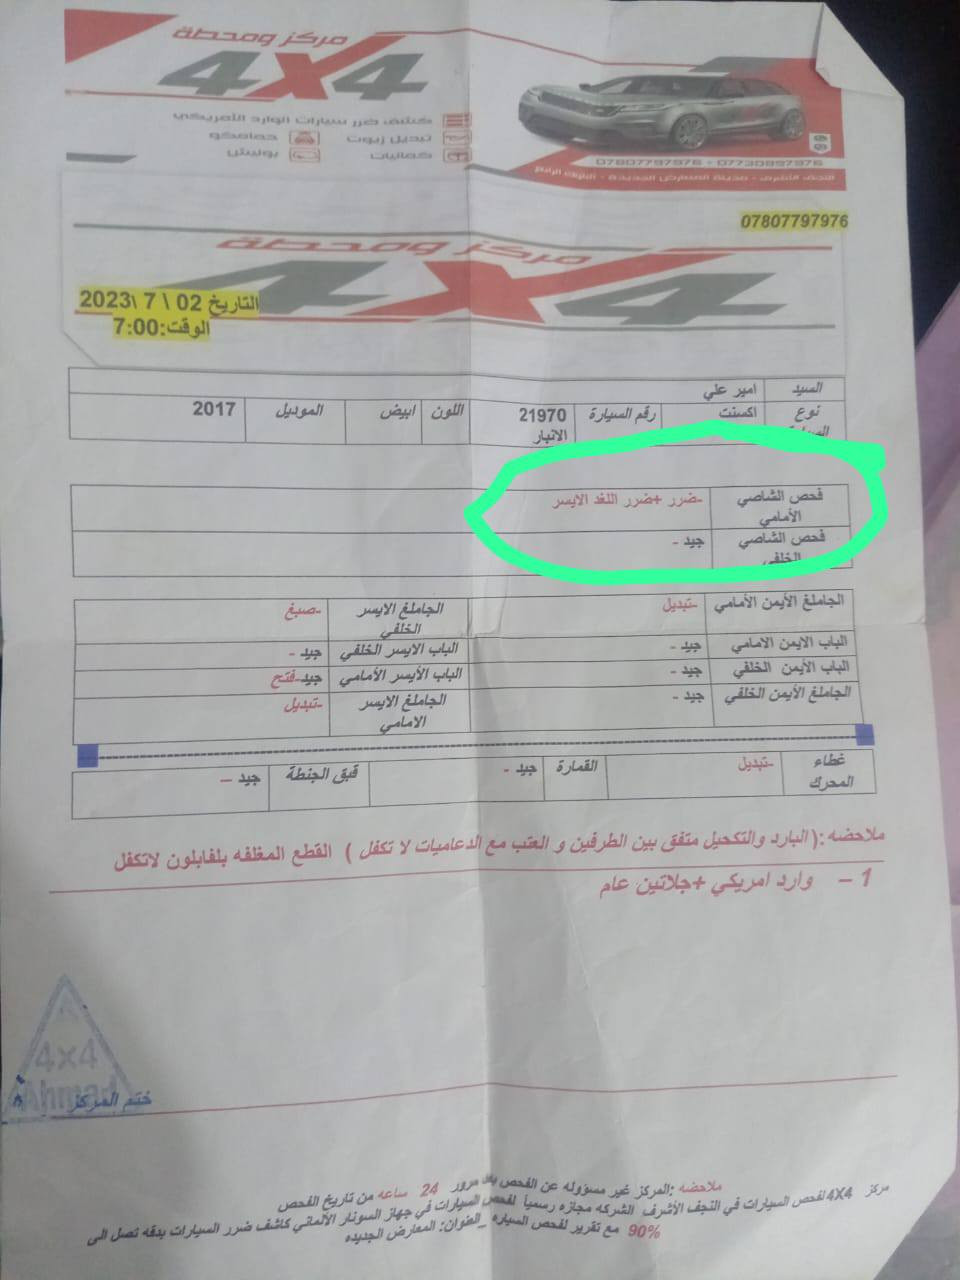 مركز ومحطة
4X4
كشف ضرر سيارات الوارد الأمريكي
تبديل زيوت
حمامكو
كماليات
بوليش
07807797976 - 07730897976
النجف الأشرف - مدينة المعارض الجديدة - البلوك الرابع
07807797976
مركز ومحطة
4X4
التاريخ 02 \ 7 \ 2023
الوقت:7:00
السيد امير علي
نوع السيارة اكسنت رقم السيارة 21970 الانبار اللون ابيض الموديل 2017
فحص الشاصي الأمامي -ضرر +ضرر اللغد الايسر
فحص الشاصي الخلفي جيد -
الجاملغ الأيمن الأمامي -تبديل الجاملغ الايسر الخلفي -صبغ
الباب الايمن الامامي جيد - الباب الايسر الخلفي جيد -
الباب الأيمن الخلفي جيد - الباب الأيسر الأمامي جيد-فتح
الجاملغ الأيمن الخلفي جيد - الجاملغ الايسر الامامي -تبديل
غطاء المحرك -تبديل القمارة جيد - قبق الجنطة جيد –
ملاحضه :( البارد والتكحيل متفق بين الطرفين و العتب مع الدعاميات لا تكفل ) القطع المغلفه بلفابلون لاتكفل
1 – وارد امريكي +جلاتين عام
4x4
Ahmad
ختم المركز
ملاحضه :المركز غير مسؤوله عن الفحص بعد مرور 24 ساعه من تاريخ الفحص
مركز 4X4 لفحص السيارات في النجف الأشرف الشركه مجازه رسمياً لفحص السيارات في جهاز السونار الألماني كاشف ضرر السيارات بدقه تصل الى
90% مع تقرير لفحص السياره _العنوان: المعارض الجديده